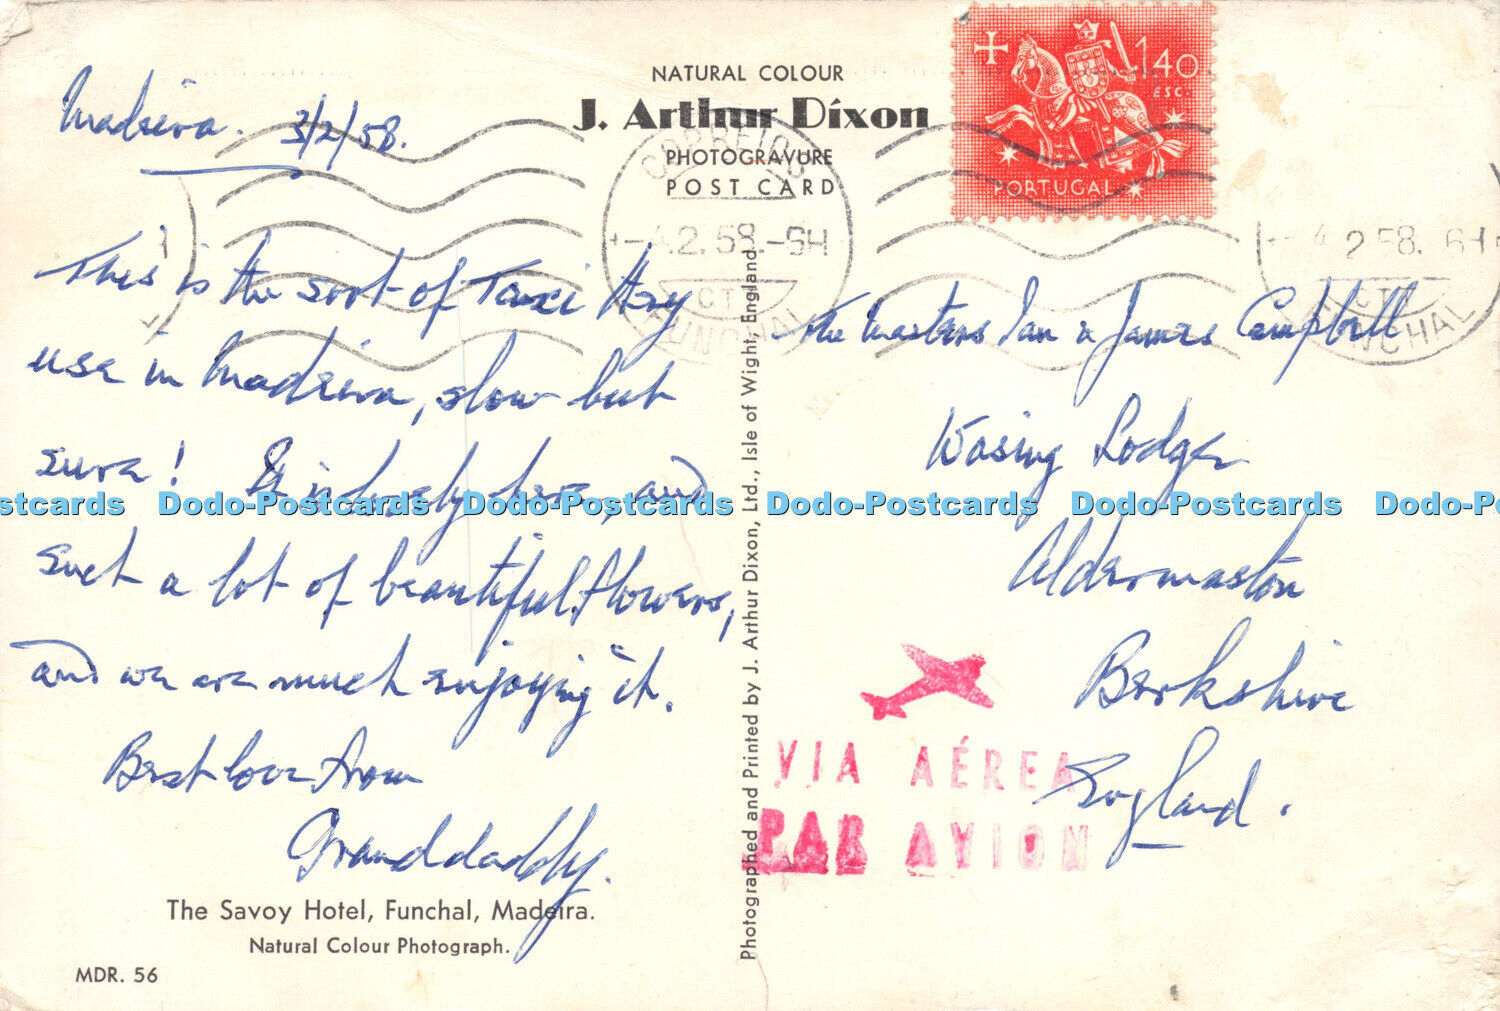 NATURAL COLOUR
J. Arthur Dixon
PHOTOGRAVURE
POST CARD
1$40
ESC.
PORTUGAL
CORREIOS
-4.2.58.-6H
CTT
FUNCHAL
4 2 58. 6H
CTT
FUNCHAL
Madeira. 3/2/58.
This is the sort of Taxi they
use in Madeira, slow but
sure! It is lovely here, and
such a lot of beautiful flowers,
and we are much enjoying it.
Best love from
Granddaddy.
The Savoy Hotel, Funchal, Madeira.
Natural Colour Photograph.
MDR. 56
Photographed and Printed by J. Arthur Dixon, Ltd., Isle of Wight, England.
The Masters Ian & James Campbell
Wasing Lodge
Aldermaston
Berkshire
England.
VIA AÉREA
PAR AVION
Dodo-Postcards Dodo-Postcards Dodo-Postcards Dodo-Postcards Dodo-Postcards Dodo-Post